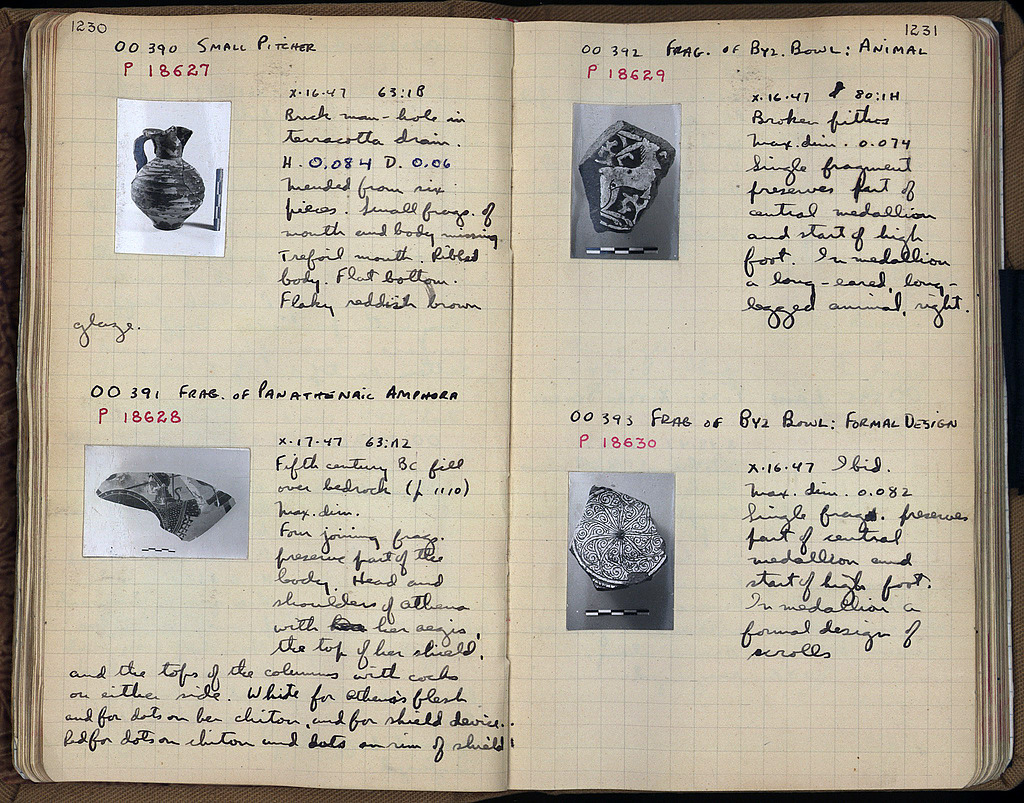 1230
OO 390 SMALL PITCHER
P 18627
X.16.47 63:1B
Brick man-hole in
terracotta drain.
H. 0.084 D. 0.06
Mended from six
pieces. Small frags. of
mouth and body missing.
Trefoil mouth. Ribbed
body. Flat bottom.
Flaky reddish brown
glaze.
OO 391 FRAG. OF PANATHENAIC AMPHORA
P 18628
X.17.47 63:12
Fifth century BC fill
over bedrock (p 1110)
Max. dim.
Four joining frags.
preserve part of the
body. Head and
shoulders of Athena
with her aegis,
the top of her shield,
and the tops of the columns with cocks
on either side. White for Athena's flesh
and for dots on her chiton, and for shield device.
Red for dots on chiton and dots on rim of shield.
1231
OO 392 FRAG. OF BYZ. BOWL: ANIMAL
P 18629
X.16.47 80:1H
Broken pithos
Max. dim. 0.074
Single fragment
preserves part of
central medallion
and start of high
foot. In medallion
a long-eared, long-
legged animal, right.
OO 393 FRAG OF BYZ BOWL: FORMAL DESIGN
P 18630
X.16.47 Ibid.
Max. dim. 0.082
Single frag. preserves
part of central
medallion and
start of high foot.
In medallion a
formal design of
scrolls